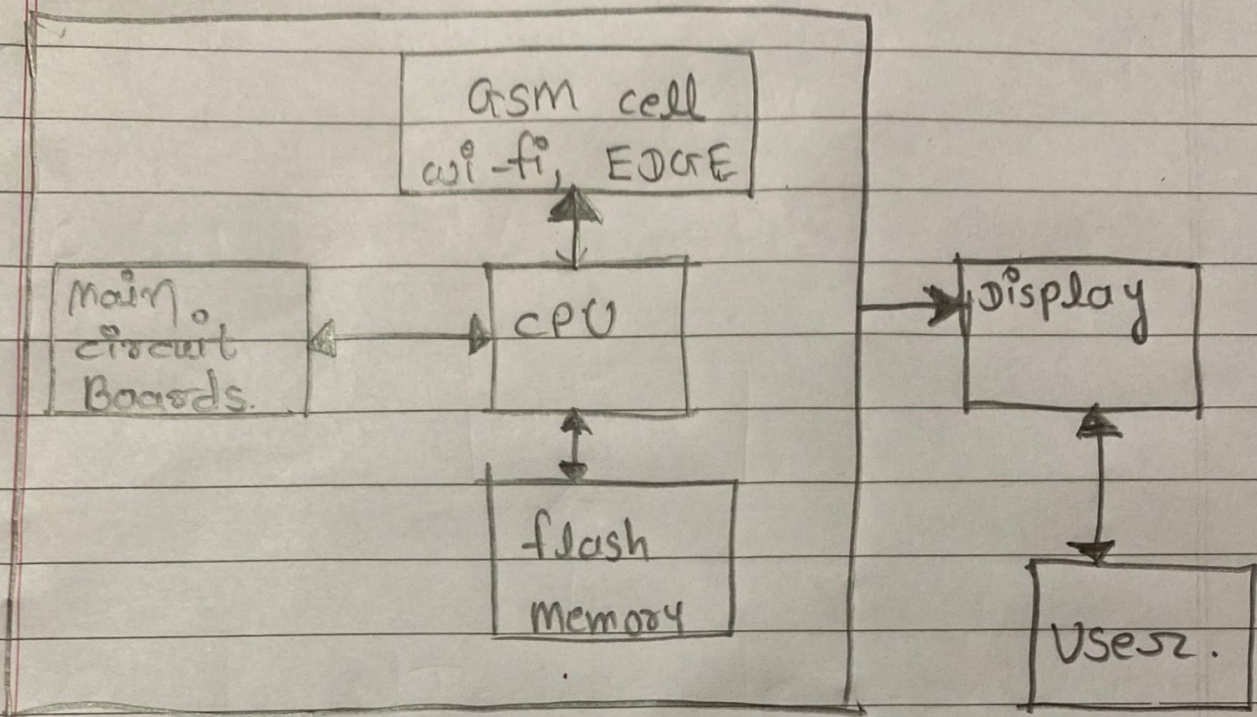 GSM cell
wi-fi, EDGE
Main
circuit
Boards.
CPU
Display
flash
memory
User.